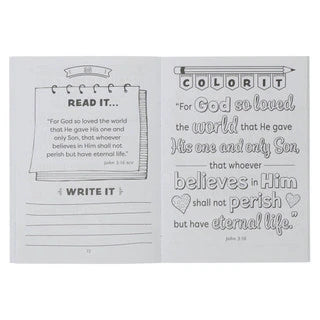 READ IT...
"For God so loved the world
that He gave His one and
only Son, that whoever
believes in Him shall not
perish but have eternal life."
John 3:16 NIV
WRITE IT
COLOR IT
"For God so loved
the world that He gave
His one and only Son,
that whoever
believes in Him
shall not perish
but have eternal life."
John 3:16